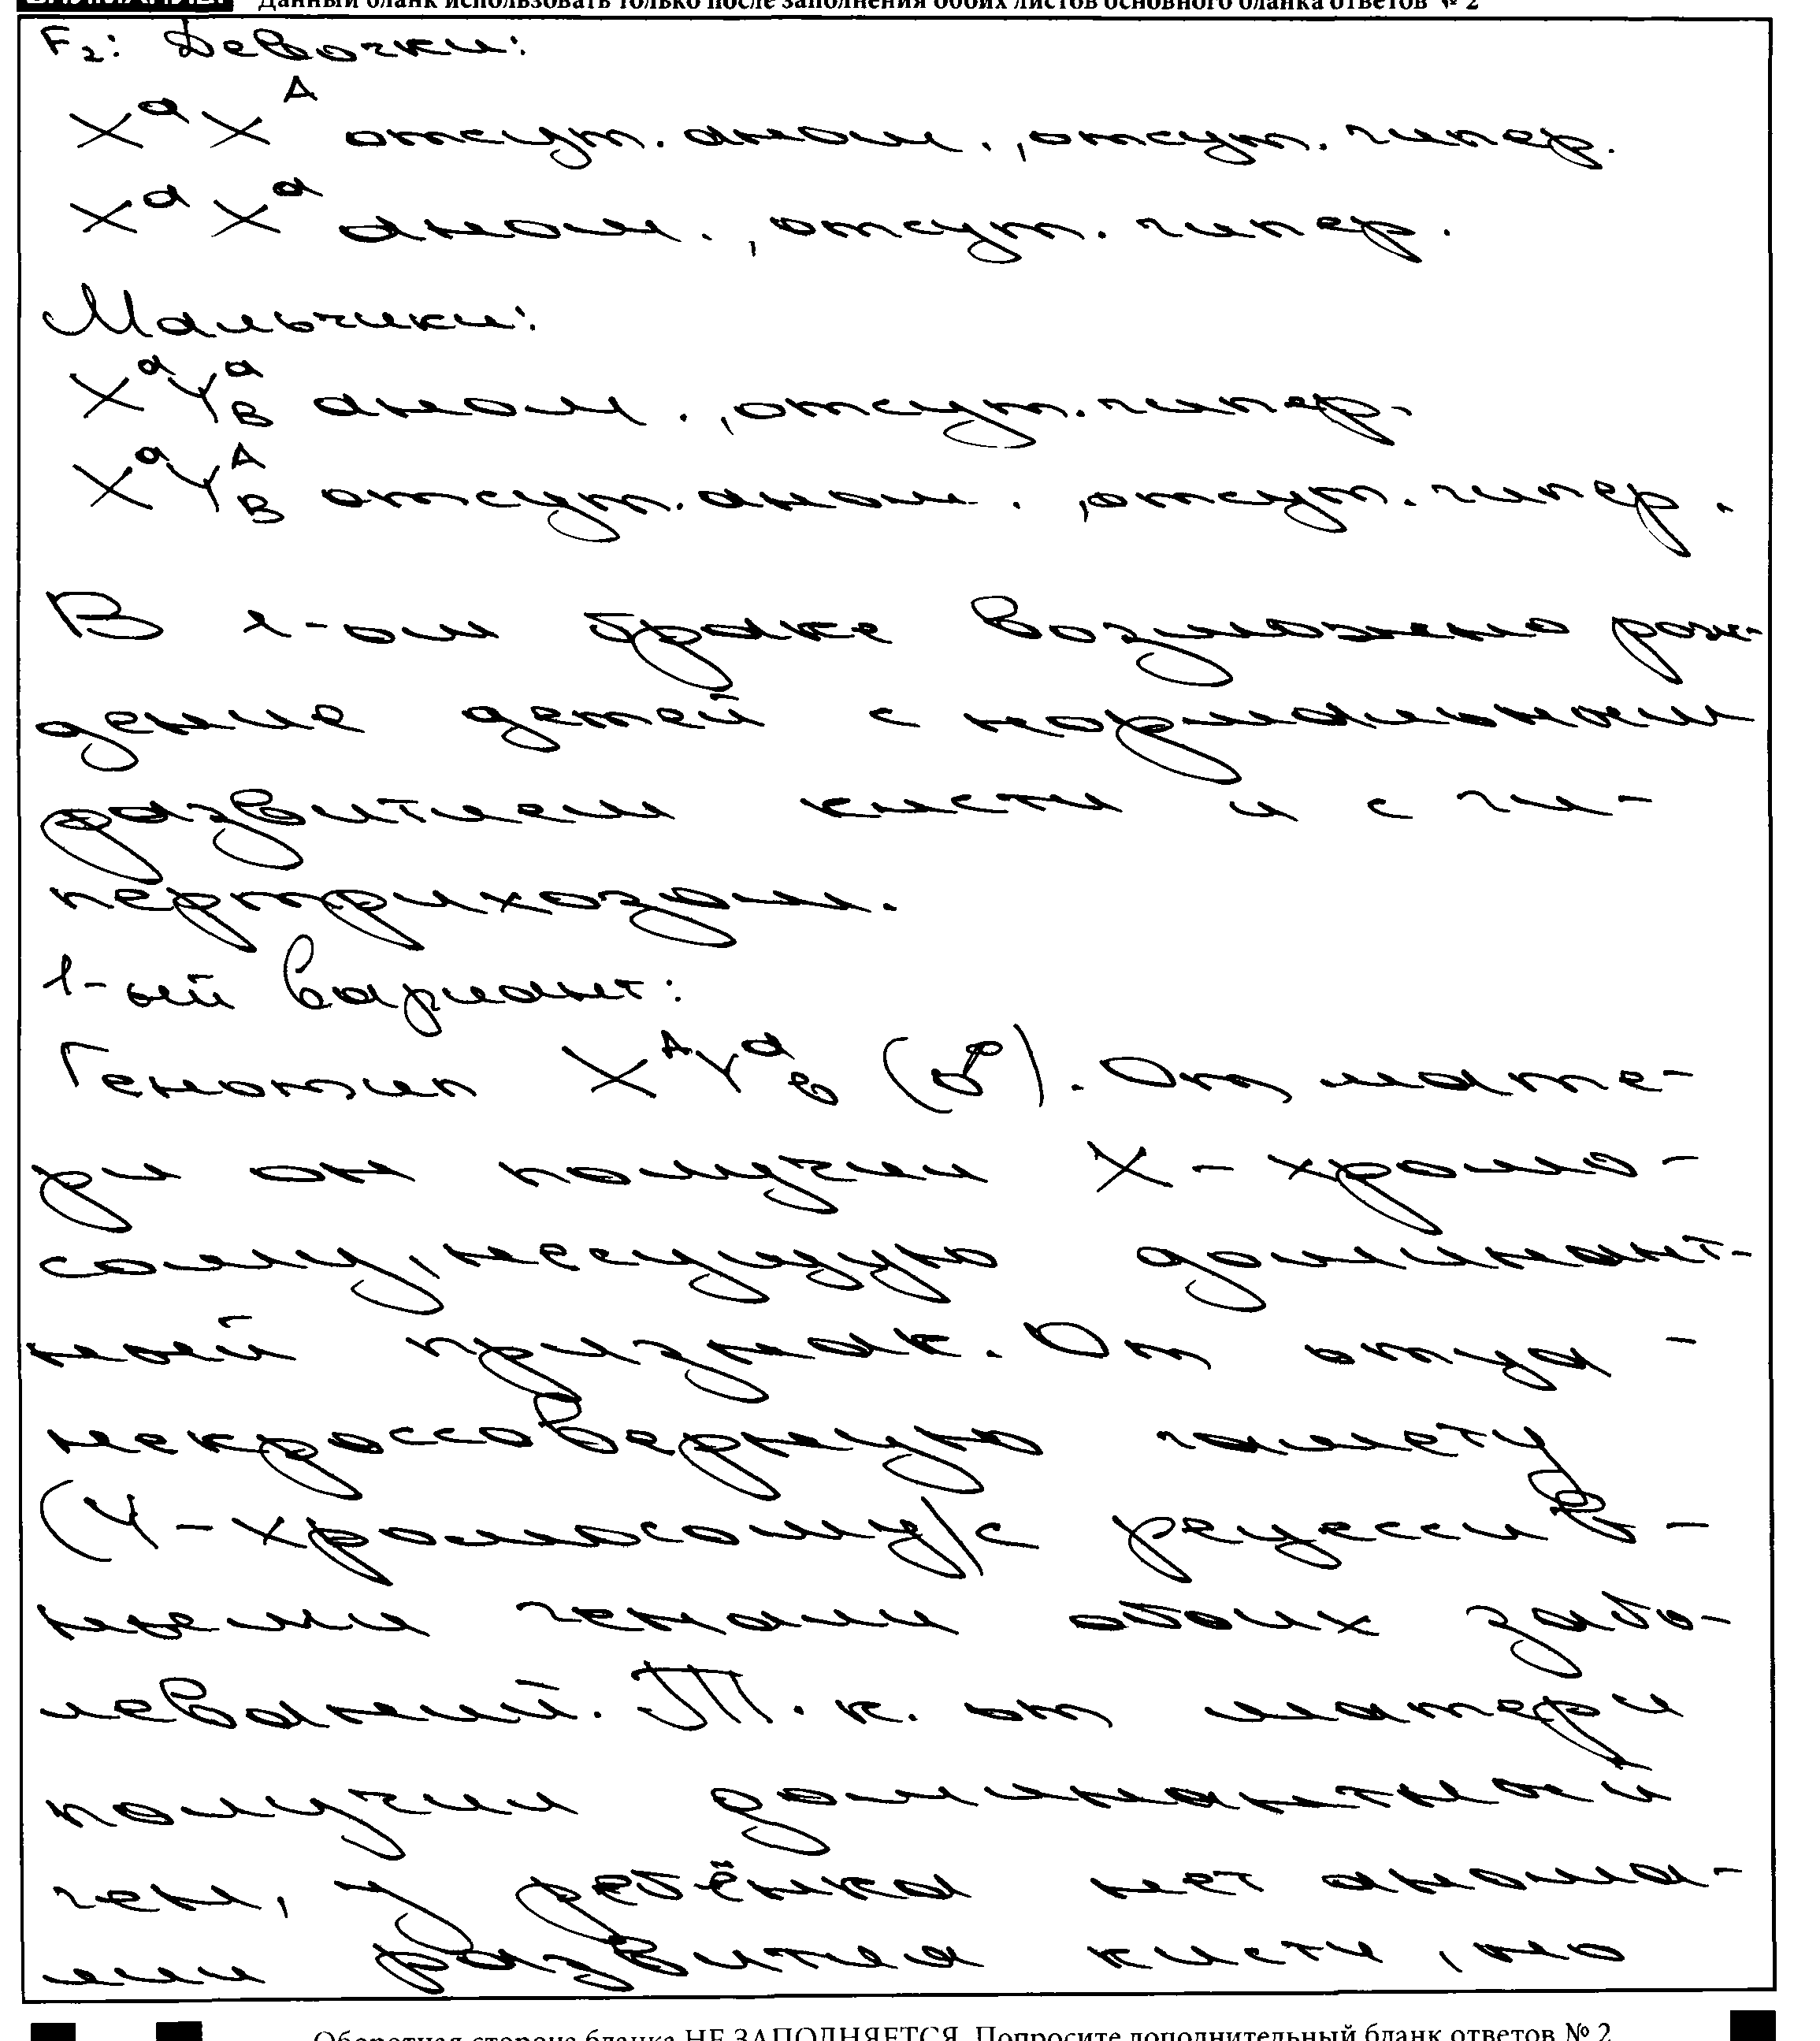 Данный бланк использовать только после заполнения обоих листов основного бланка ответов № 2
F₂: Девочки:
XᵃXᴬ отсут. аном., отсут. гипер.
XᵃXᵃ аном., отсут. гипер.
Мальчики:
XᵃYᵃB аном., отсут. гипер.
XᵃYᴬB отсут. аном., отсут. гипер.
В 1-ом браке возможно рож-
дение детей с нормальным
развитием кисти и с ги-
пертрихозом.
1-ый вариант:
Генотип XᴬYᵃв (♂). От мате-
ри он получил X-хромо-
сому, несущую доминант-
ный признак. От отца -
некроссоверную гамету
(Y-хромосому) с рецессив-
ными генами обоих забо-
леваний. Т.к. от матери
получил доминантный
ген, у ребёнка нет анома-
лии развития кисти, но
Оборотная сторона бланка НЕ ЗАПОЛНЯЕТСЯ. Попросите дополнительный бланк ответов № 2